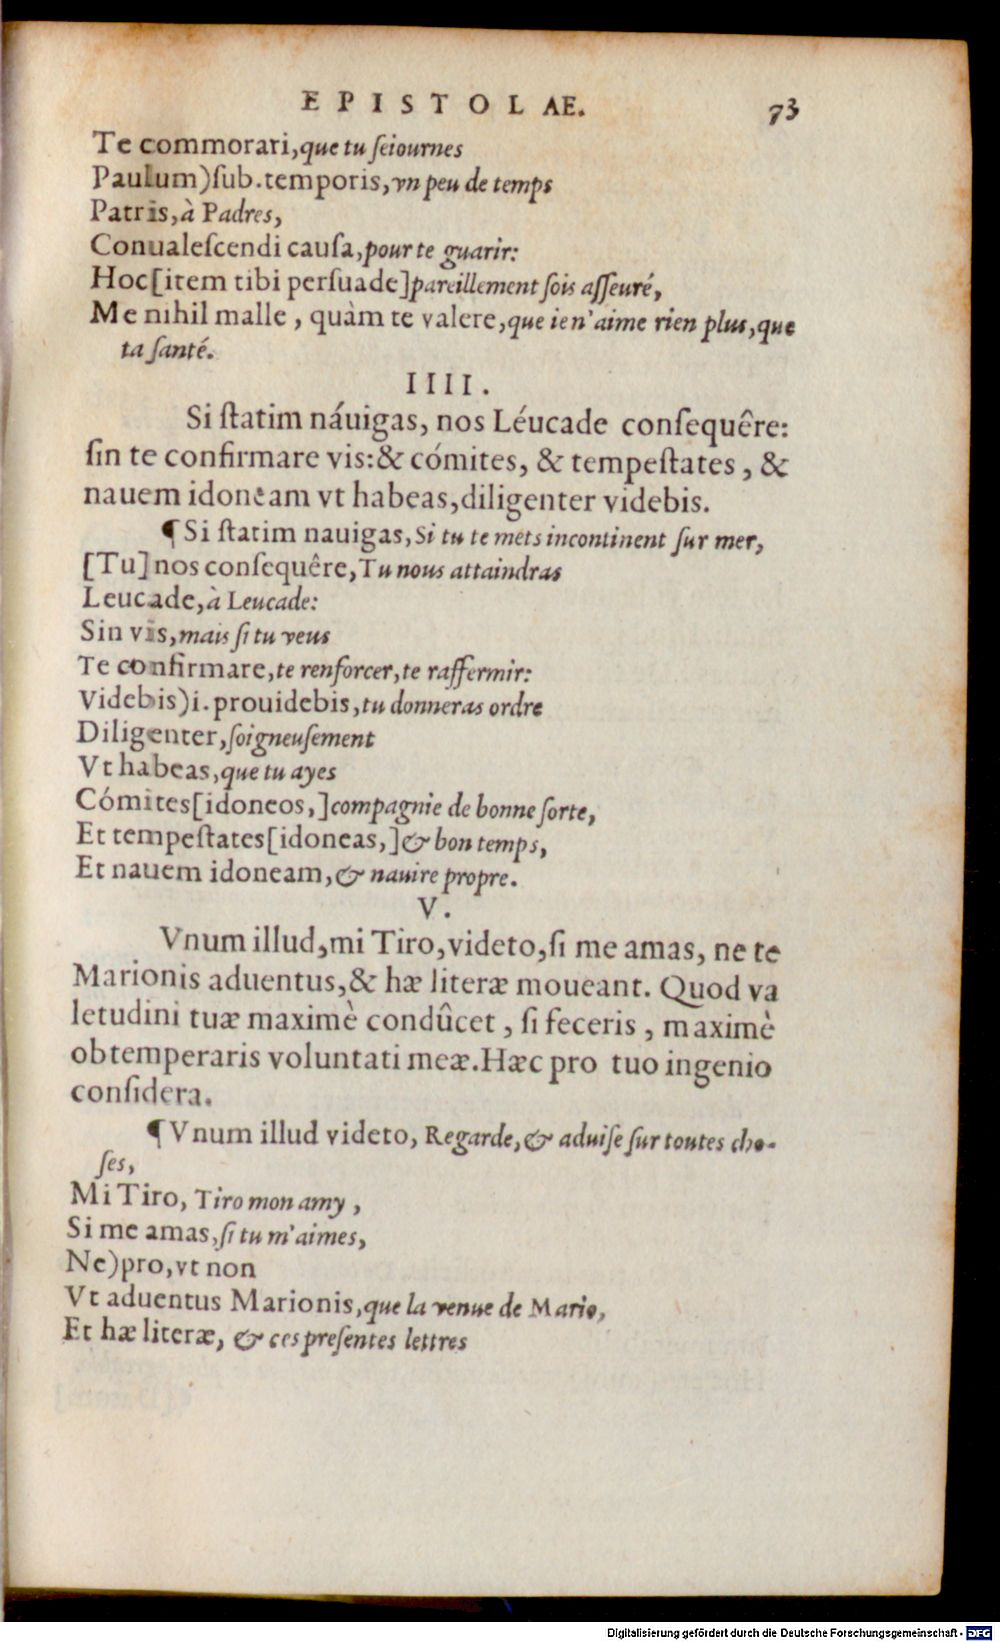 EPISTOLAE. 73
Te commorari, que tu ſeiournes
Paulum)ſub. temporis, vn peu de temps
Patris, à Padres,
Conualeſcendi cauſa, pour te guarir:
Hoc[item tibi perſuade]pareillement ſois aſſeuré,
Me nihil malle, quàm te valere, que ie n'aime rien plus, que
ta ſanté.
IIII.
Si ſtatim náuigas, nos Léucade conſequêre:
ſin te confirmare vis:& cómites, & tempeſtates, &
nauem idoneam vt habeas, diligenter videbis.
¶ Si ſtatim nauigas, Si tu te mets incontinent ſur mer,
[Tu] nos conſequêre, Tu nous attaindras
Leucade, à Leucade:
Sin vis, mais ſi tu veus
Te confirmare, te renforcer, te raffermir:
Videbis)i. prouidebis, tu donneras ordre
Diligenter, ſoigneuſement
Vt habeas, que tu ayes
Cómites[idoneos,]compagnie de bonne ſorte,
Et tempeſtates[idoneas,]& bon temps,
Et nauem idoneam, & nauire propre.
V.
Vnum illud, mi Tiro, videto, ſi me amas, ne te
Marionis aduentus, & hæ literæ moueant. Quod va
letudini tuæ maximè condûcet, ſi feceris, maximè
obtemperaris voluntati meæ. Hæc pro tuo ingenio
conſidera.
¶ Vnum illud videto, Regarde, & aduiſe ſur toutes cho-
ſes,
Mi Tiro, Tiro mon amy,
Si me amas, ſi tu m'aimes,
Ne)pro, vt non
Vt aduentus Marionis, que la venue de Mario,
Et hæ literæ, & ces preſentes lettres
Digitalisierung gefördert durch die Deutsche Forschungsgemeinschaft - DFG